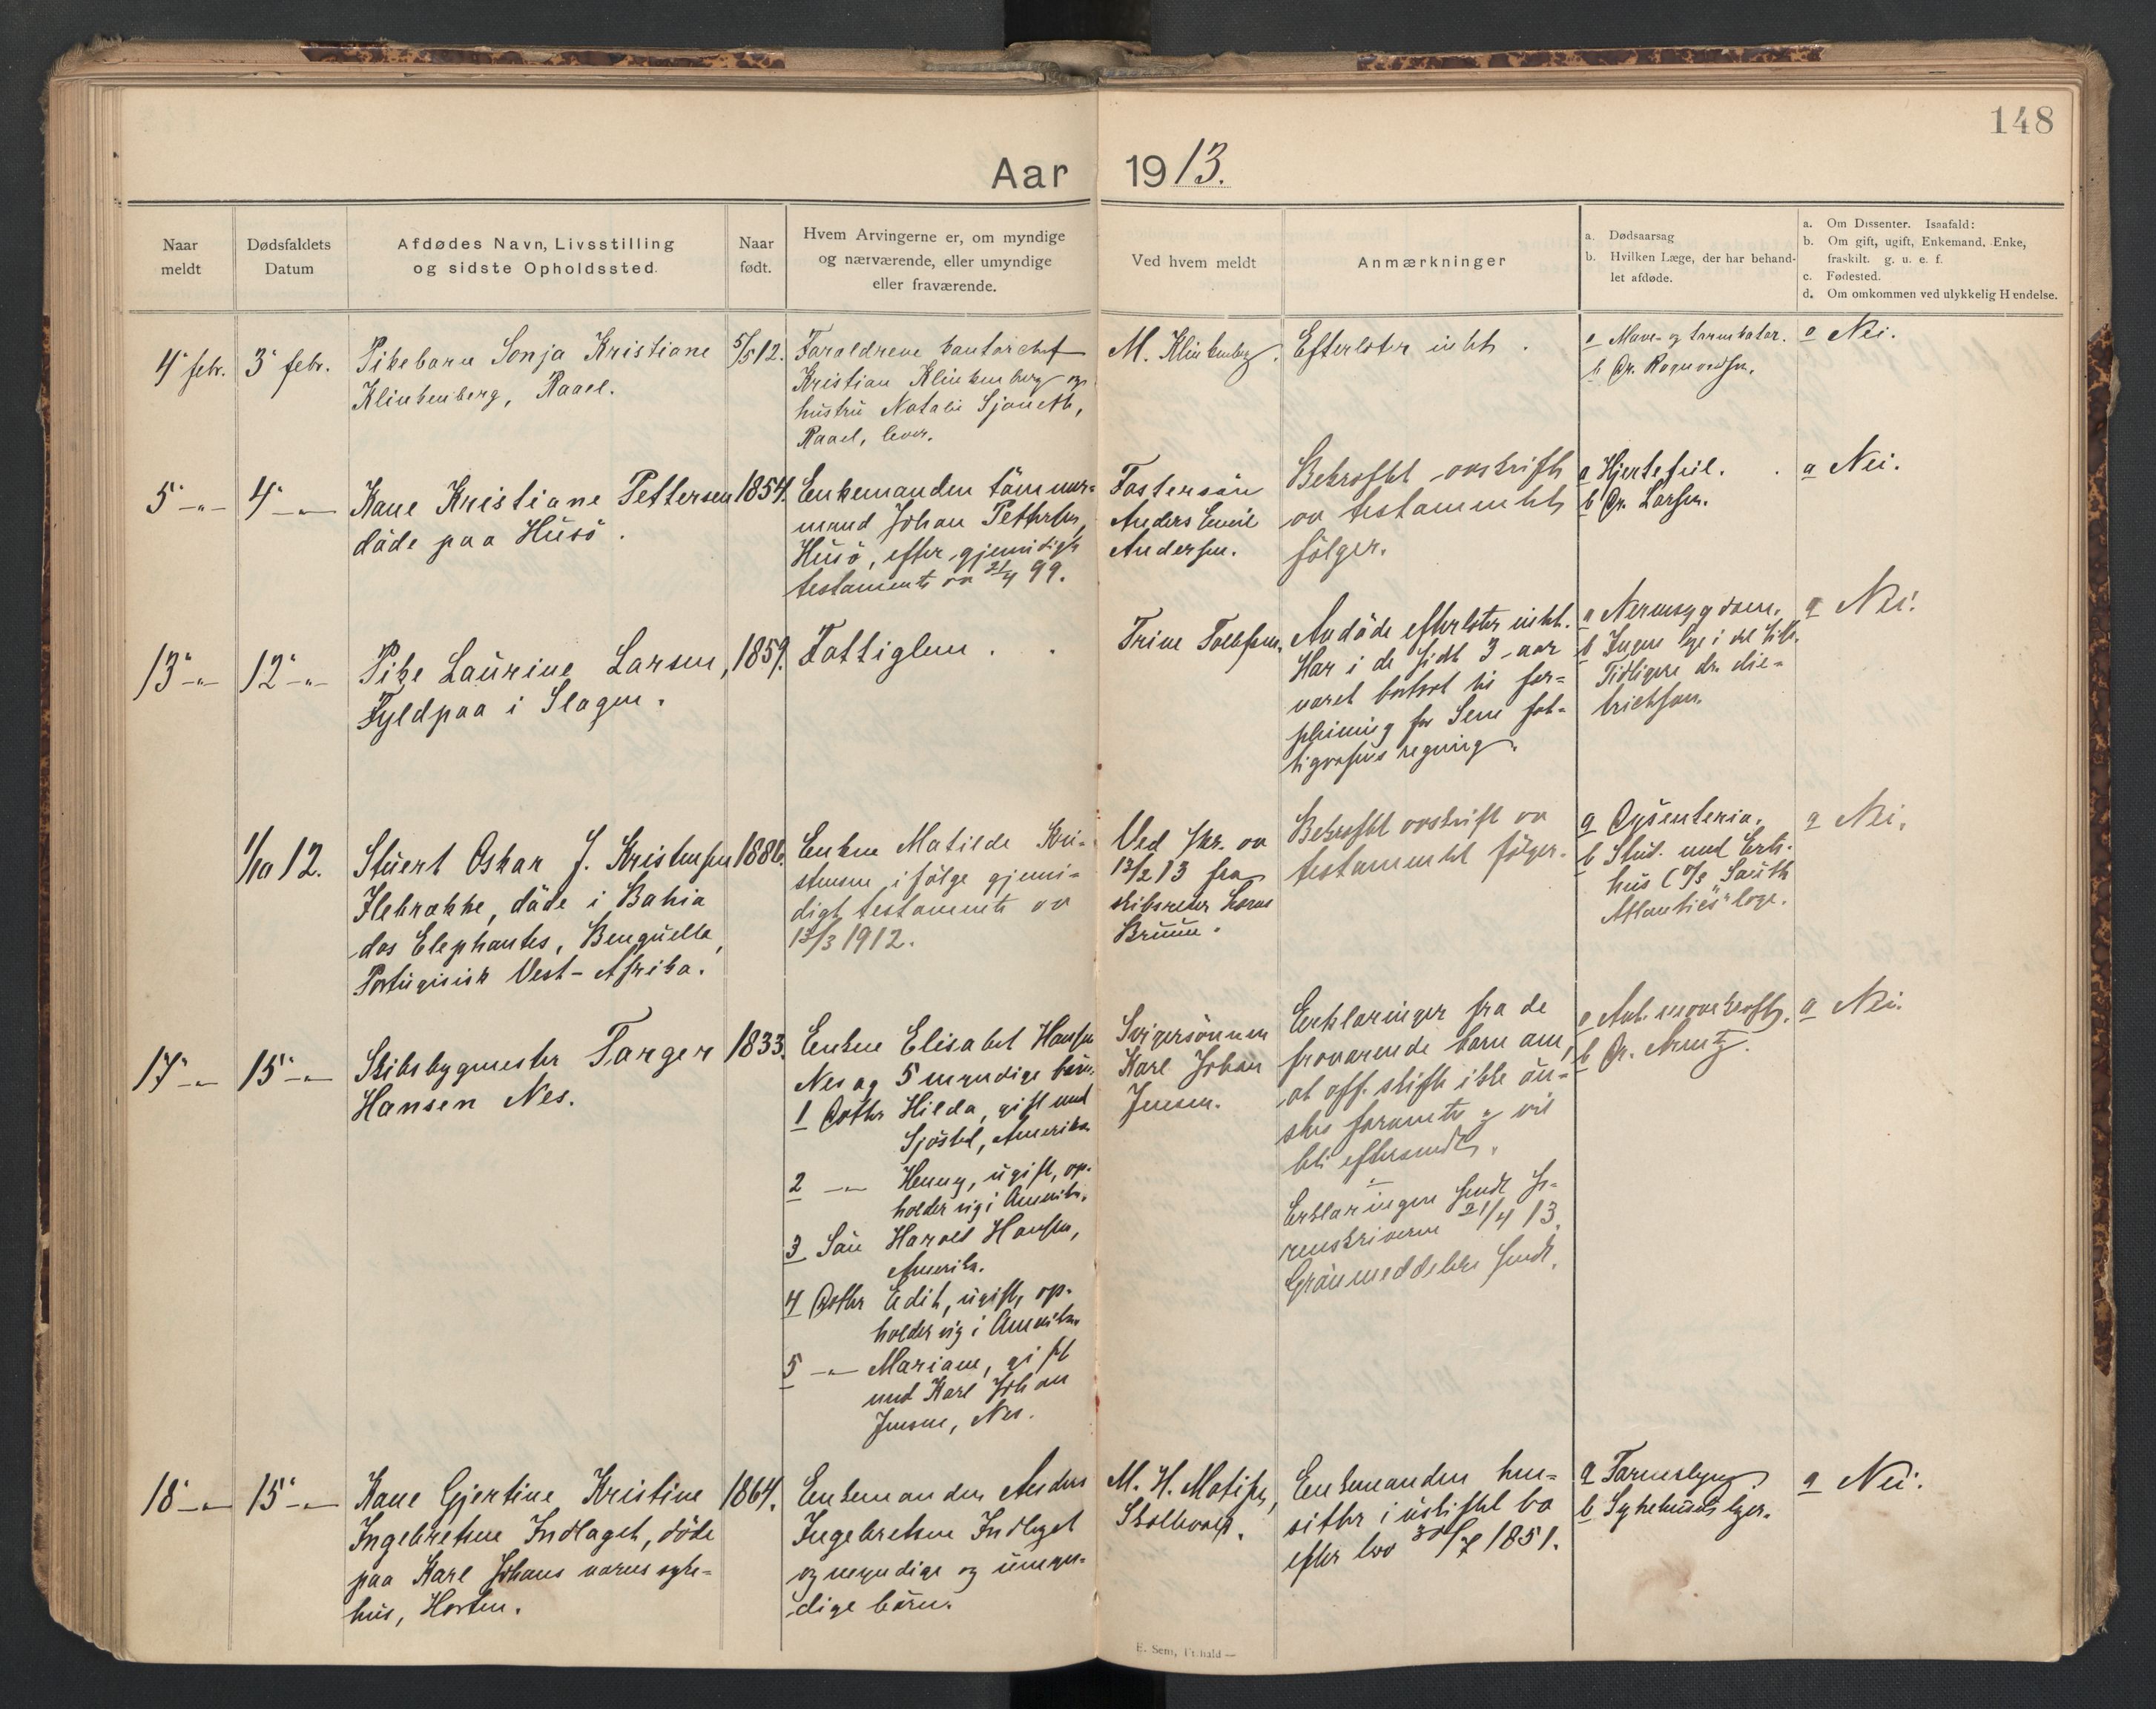 148
Aar 1913.
Naar meldt
Dødsfaldets Datum
Afdødes Navn, Livsstilling og sidste Opholdssted.
Naar født.
Hvem Arvingerne er, om myndige og nærværende, eller umyndige eller fraværende.
Ved hvem meldt
Anmærkninger
a. Dødsaarsag
b. Hvilken Læge, der har behandlet afdøde.
a. Om Dissenter. Isaafald:
b. Om gift, ugift, Enkemand, Enke, fraskilt. g. u. e. f.
c. Fødested.
d. Om omkommen ved ulykkelig Hændelse.
4' febr.
3' febr.
Pikebarn Sonja Kristiane
Klinkenberg, Raael.
5/5 12.
Foraldrene kontorchef
Kristian Klinkenberg og
hustru Natalie Sjaneth,
Raael, lever.
M. Klinkenberg.
Efterlater intet.
a Mave- og tarmkatar.
b Dr. Rognvedssen.
a Nei.
5' -"-
4' -"-
Kone Kristiane Pettersen
döde paa Husö.
1854.
Enkemanden tömmer-
mand Johan Pettersen,
Husö, efter gjensidigt
testamente av 21/4 99.
Fostersön
Anders Emil
Andersen.
Bekræftet avskrift
av testamentet
fölger.
a Hjertefeil.
b Dr. Larsen.
a Nei.
13' -"-
12' -"-
Pike Laurine Larsen,
Fyldpaa i Slagen.
1859.
Fattiglem.
Trine Tollefsen.
Avdöde efterlater intet.
Har i de sidste 3 aar
været bortsat til for-
pleining for Sem fat-
tigvæsens regning.
a Nervesygdom.
b Ingen læge i det siste.
Tidligere dr. Die-
trichson.
a Nei.
1/10 12.
Stuert Oskar J. Kristensen
Flebrække, döde i Bahia
dos Elephantes, Benguella,
Portugisisk Vest-Afrika.
1886.
Enken Matilde Kri-
stensen ifölge gjensi-
digt testamente av
13/3 1912.
Ved skr. av
13/2 13 fra
skibsreder Lorens
Bruun.
Bekræftet avskrift av
testamentet fölger.
a Dysenteria.
b Stud. med Erk-
hus (S/S "South
Atlantic's" læge.
a Nei.
17' -"-
15' -"-
Skibsbygmester Torger
Hansen Nes.
1833.
Enken Elisabet Hansen
Nes og 5 myndige barn:
1 Datter Hilda, gift med
Sjösted, Amerika
2 -"- Henny, ugift, op-
holder sig i Amerika.
3 Sön Harald Hansen,
Amerika.
4 Datter Edit, ugift, op-
holder sig i Amerika
5 -"- Mariane, gift
med Karl Johan
Jensen, Nes.
Svigersönnen
Karl Johan
Jensen.
Erklæringer fra de
fraværende barn om,
at off. skifte ikke ön-
skes foretat og vil
bli eftersendt.
Erklæringen sendt So-
renskriveren 21/4 13.
Grönmeddelelse sendt.
b Dr. Arentz.
a Nei.
18' -"-
15' -"-
Kone Gjertine Kristine
Ingebretsen Indlaget, döde
paa Karl Johans værns syke-
hus, Horten.
1864.
Enkemanden Anders
Ingebretsen Indlaget
og myndige og umyn-
dige börn.
M. H. Matisen,
Skallevold.
Enkemanden hen-
sitter i uskiftet bo
efter lov 30/7 1851.
a Tarmslyng
b Sykehusets læger.
a Nei.
E. Sem, Fr.hald —